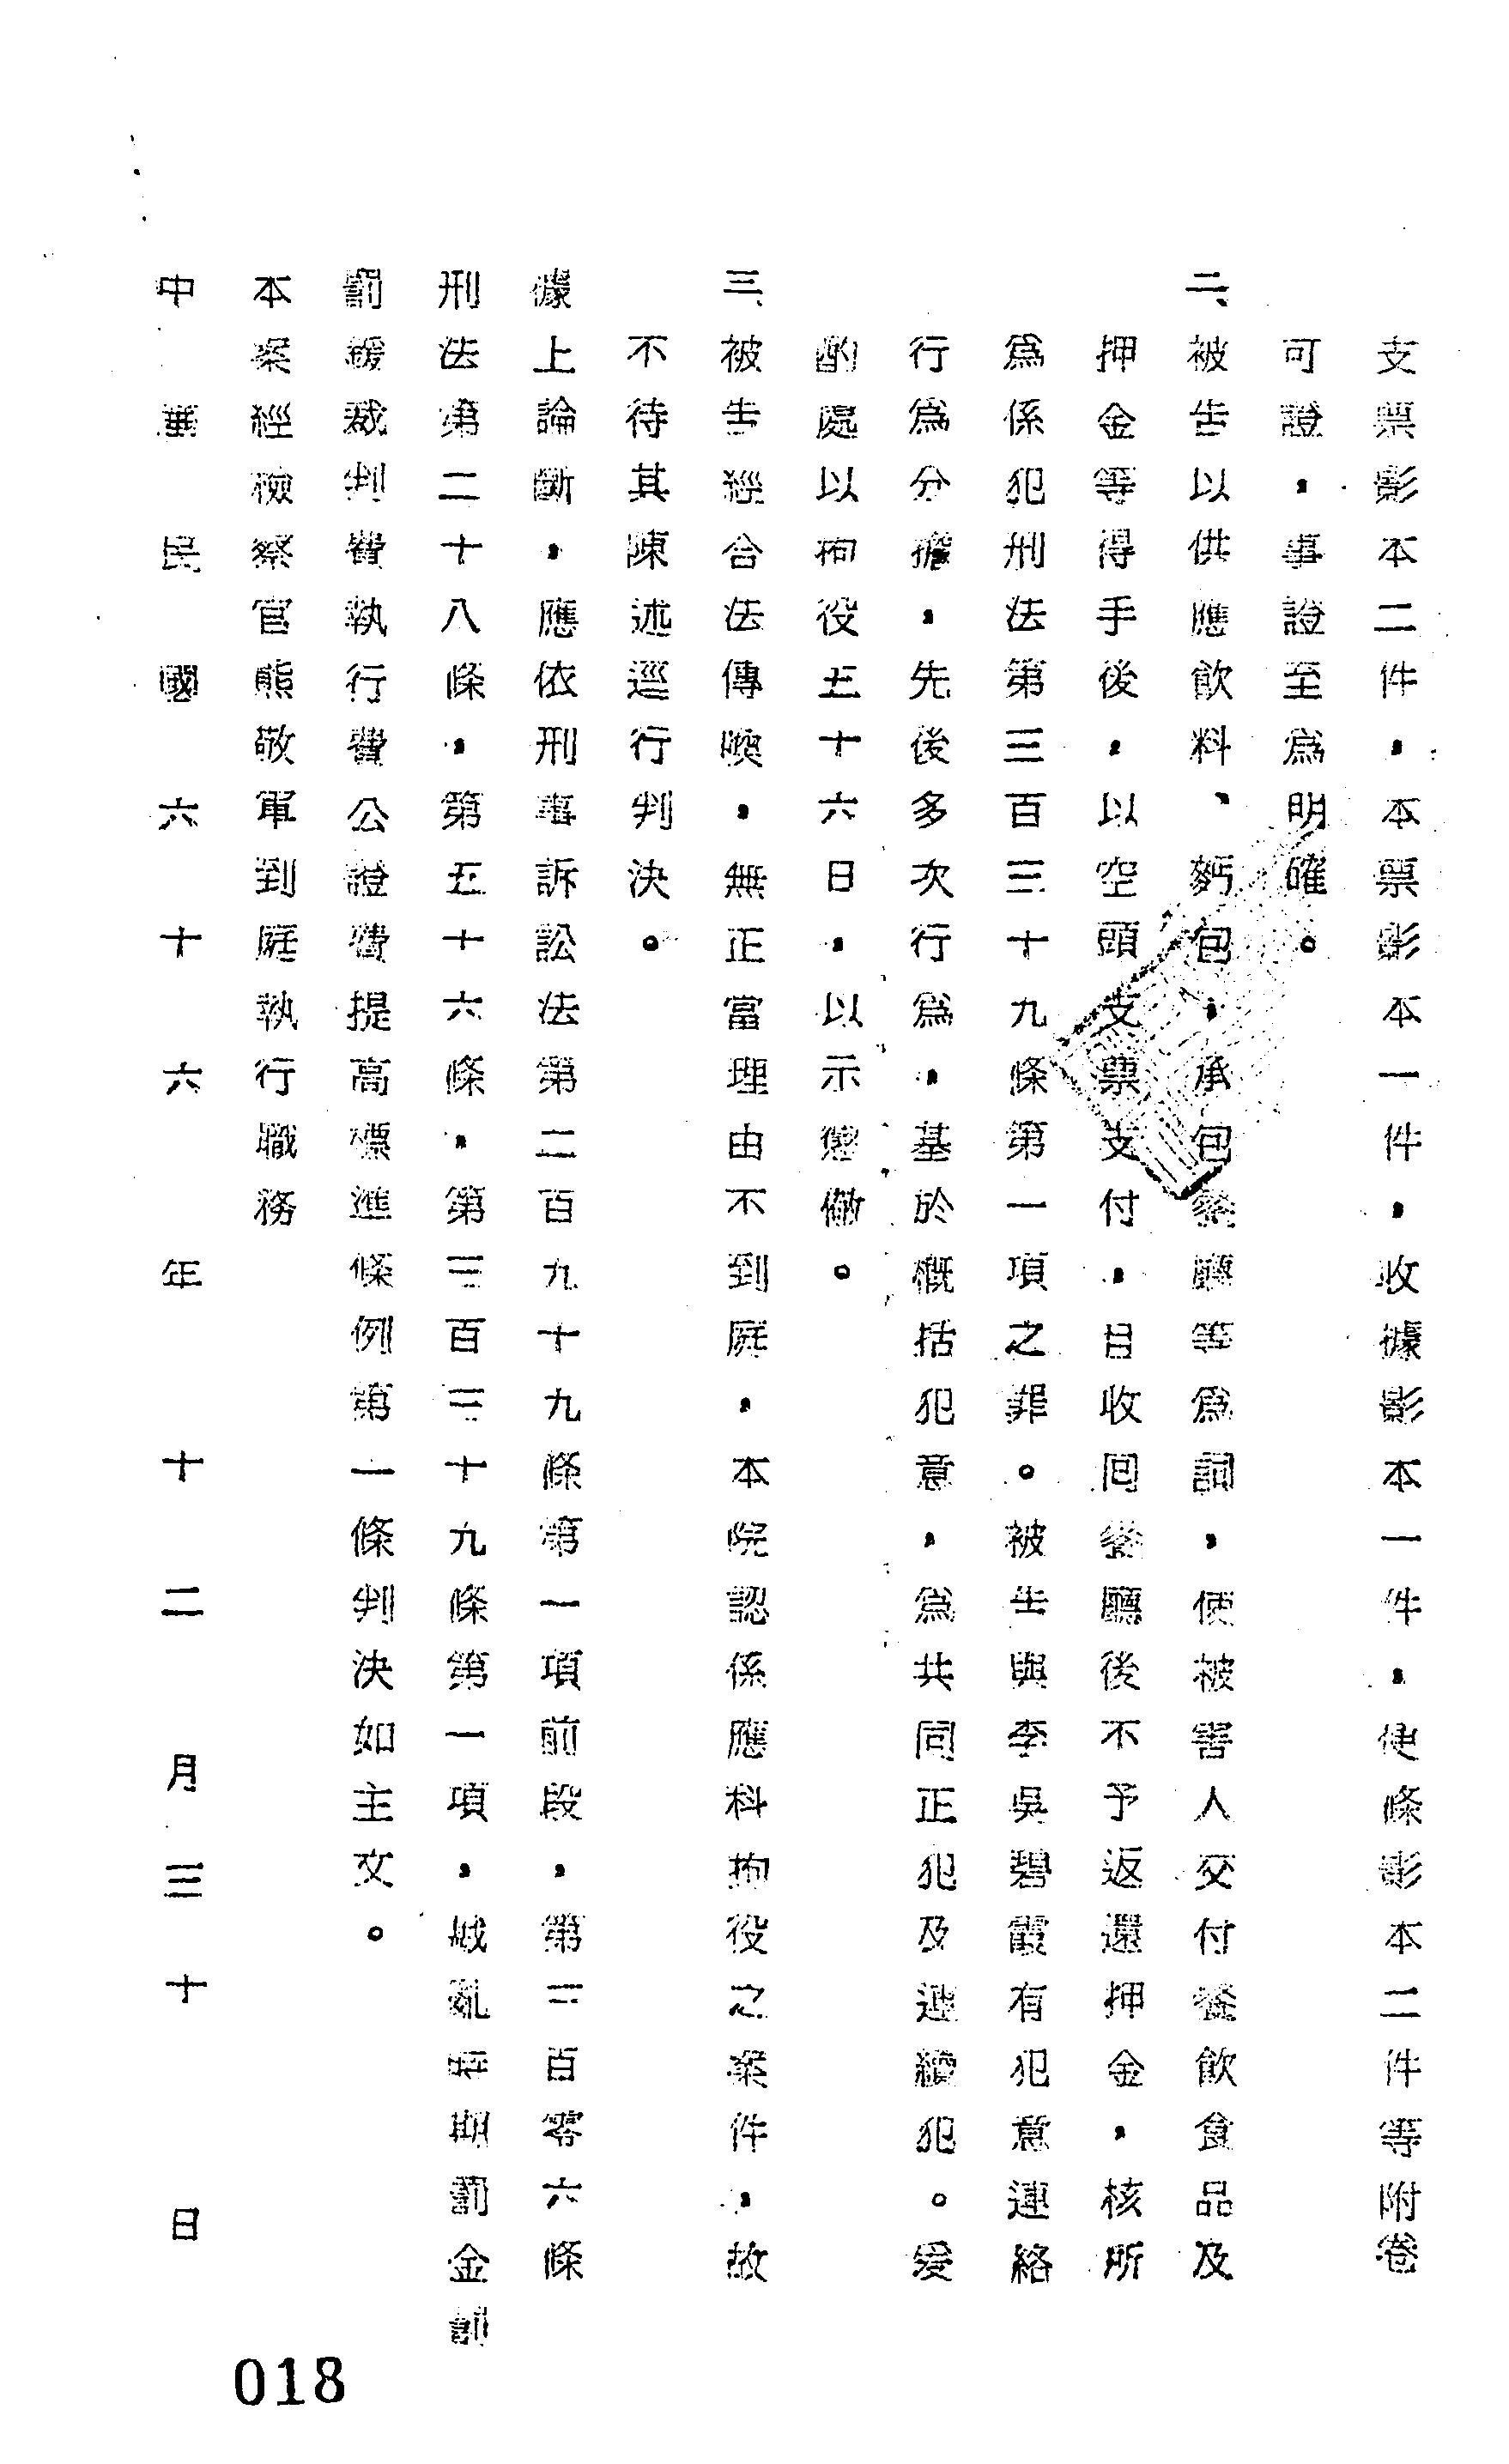 支票影本二件，本票影本一件，收據影本一件，便條影本二件等附卷
可證，事證至為明確。
二、被告以供應飲料、麪包，承包餐廳等為詞，使被害人交付餐飲食品及
押金等得手後，以空頭支票支付，日收回餐廳後不予返還押金，核所
為係犯刑法第三百三十九條第一項之罪。被告與李吳碧霞有犯意連絡
行為分擔，先後多次行為，基於概括犯意，為共同正犯及連續犯。爰
酌處以拘役五十六日，以示懲儆。
三、被告經合法傳喚，無正當理由不到庭，本院認係應科拘役之案件，故
不待其陳述逕行判決。
據上論斷，應依刑事訴訟法第二百九十九條第一項前段，第三百零六條
刑法第二十八條，第五十六條，第三百三十九條第一項，戡亂時期罰金罰
罰鍰裁判費執行費公證費提高標準條例第一條判決如主文。
本案經檢察官熊敬軍到庭執行職務
中華民國六十六年十二月三十日
018